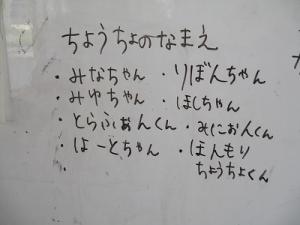 ちょうちょのなまえ
・みなちゃん ・りぼんちゃん
・みゆちゃん ・ほしちゃん
・とらふぁんくん ・みにおんくん
・はーとちゃん ・ほんもり
ちょうちょくん